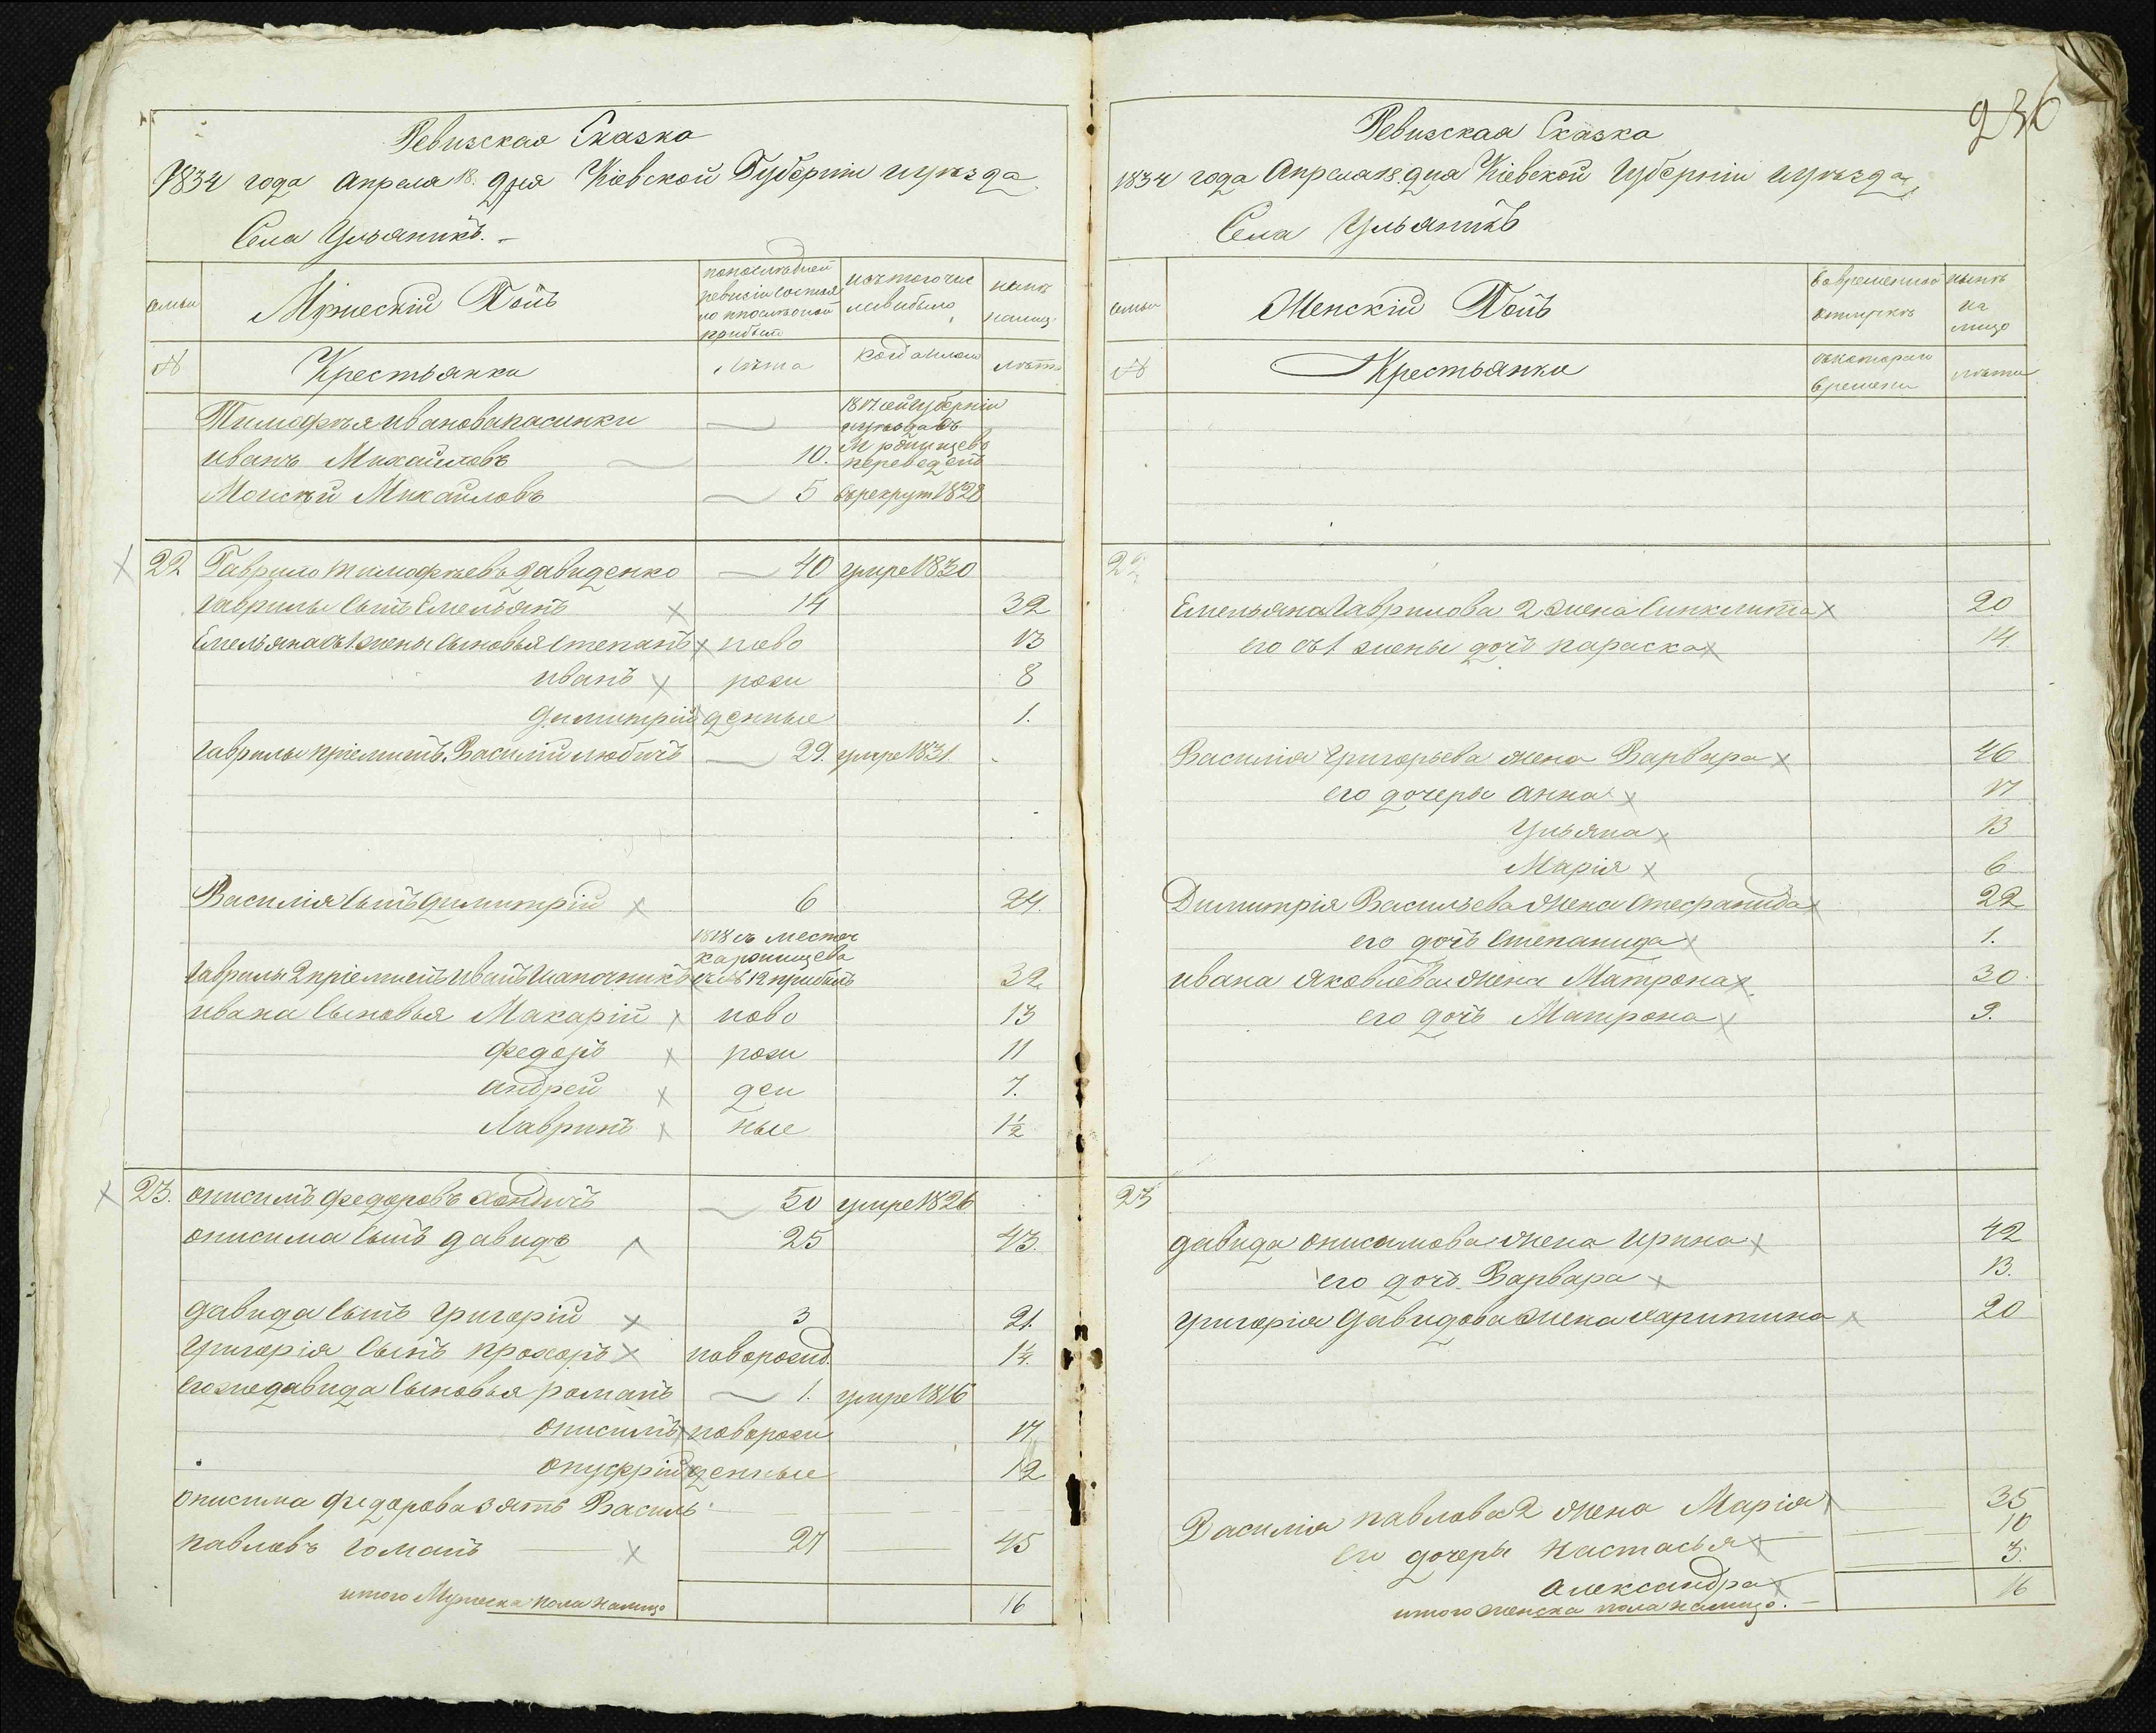 Ревизская Сказка
1834 года Апреля 18. дня Кіевской Губерніи и уѣзда
Села Ульяникъ.
семьи
Мужескій Полъ
по последней ревизіи состояло и после оной прибыло
изъ того числа выбыло
нынѣ налицо
№
Крестьянки
Лѣта
когда именно
лѣта
Тимофѣя Иванова пасинки
1817 сей губерніи и уѣзда въ
Иванъ Михайловъ 10. М ронищевъ переведенъ
Моисѣй Михайловъ 5 въ рекрут 1828
22 Гаврило тимофѣевъ давиденко 40 умре 1830
гаврилы Сынъ Емельянъ 14 32
Емельяна съ 1 жены Сыновья Степанъ ново 13
иванъ рожи 8
димитрій денные 1.
гаврилы пріемышъ Василій любичъ 29. умре 1831
Василія Сынъ димитрій 6 24.
1818 съ местеч
каронищева
гаврилы 2 пріемышъ иванъ Шапочникъ 12 прибылъ 32
ивана Сыновья Макарій ново 13
федоръ рожи 11
андрей ден 7.
Лавринъ ные 1½
23. онисимъ федоровъ хондичъ 50 умре 1826
онисима Сынъ давидъ 25 43.
давида Сынъ григорій 3 21
григорія Сынъ прохоръ наворожд. 1¼
его же давида Сыновья романъ 1. умре 1816
онисимъ наворожи 17
онуфрій денные 12
онисима федорова зять Василь
павловъ гоманъ 27 45
итого Мужеска пола налицо 16
236
Ревизская Сказка
1834 года Апреля 18. дня Кіевской Губерніи и уѣзда
Села Ульяникъ
семьи
Женскій Полъ
во временной отлучкѣ
нынѣ на лицо
№
Крестьянки
съ котораго времени
лѣта
22
Емельяна гаврилова 2 жена Синклита 20
его отъ 1 жены дочь параска 14.
Василія григорьева жена Варвара 46
его дочеры анна 17
Ульяна 13
Марія 6
Димитрія Васильева жена Стефанида 22
его дочь Степанида 1.
ивана яковлева жена Матрона 30.
его дочь Матрона 9.
23
давида онисимова жена ирина 42
его дочь Варвара 13.
григорія давидова жена харитина 20
Василія павлова 2 жена Марія 35
его дочеры настасья 10
александра 3.
итого женска пола налицо. 16